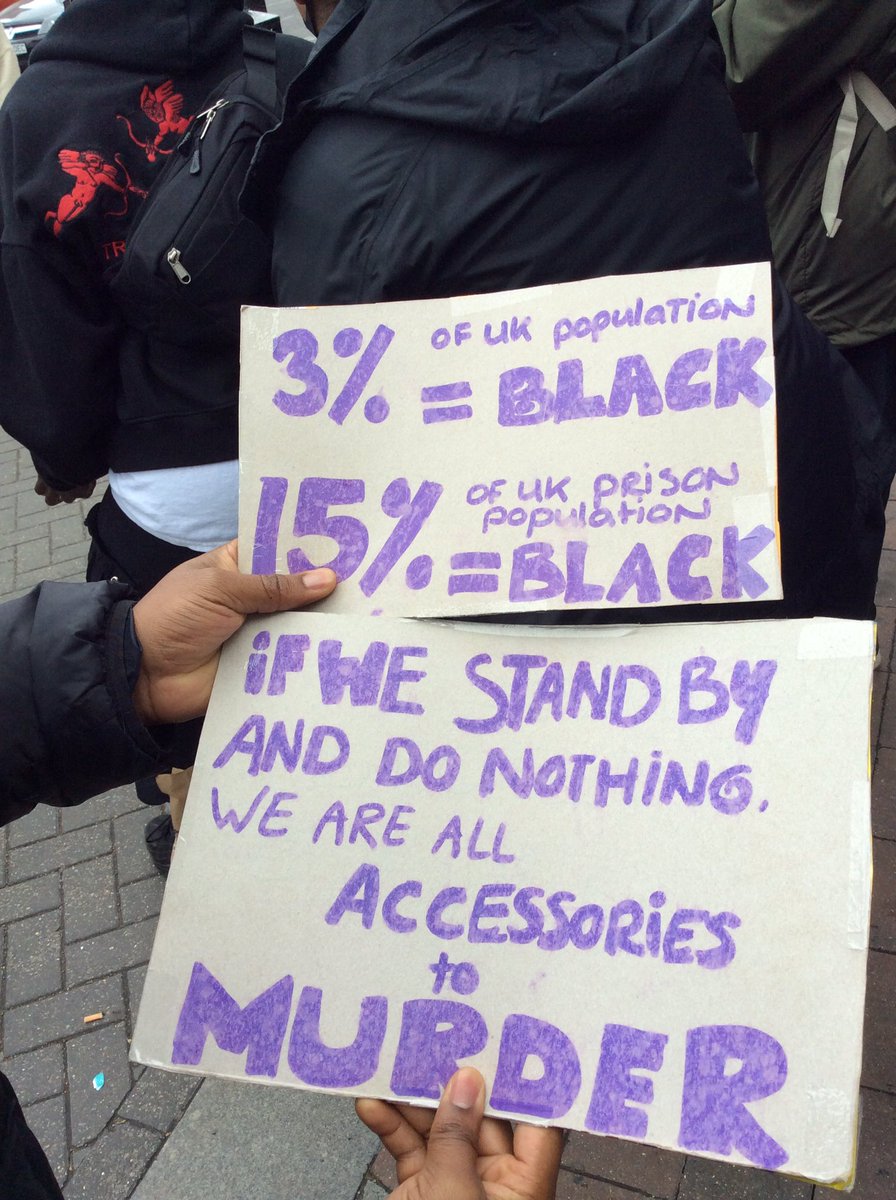 TR
3% OF UK population
= BLACK
15% OF UK prison
population
= BLACK
iF WE STAND BY
AND DO NOTHiNG,
WE ARE ALL
ACCESSORiES
to
MURDER